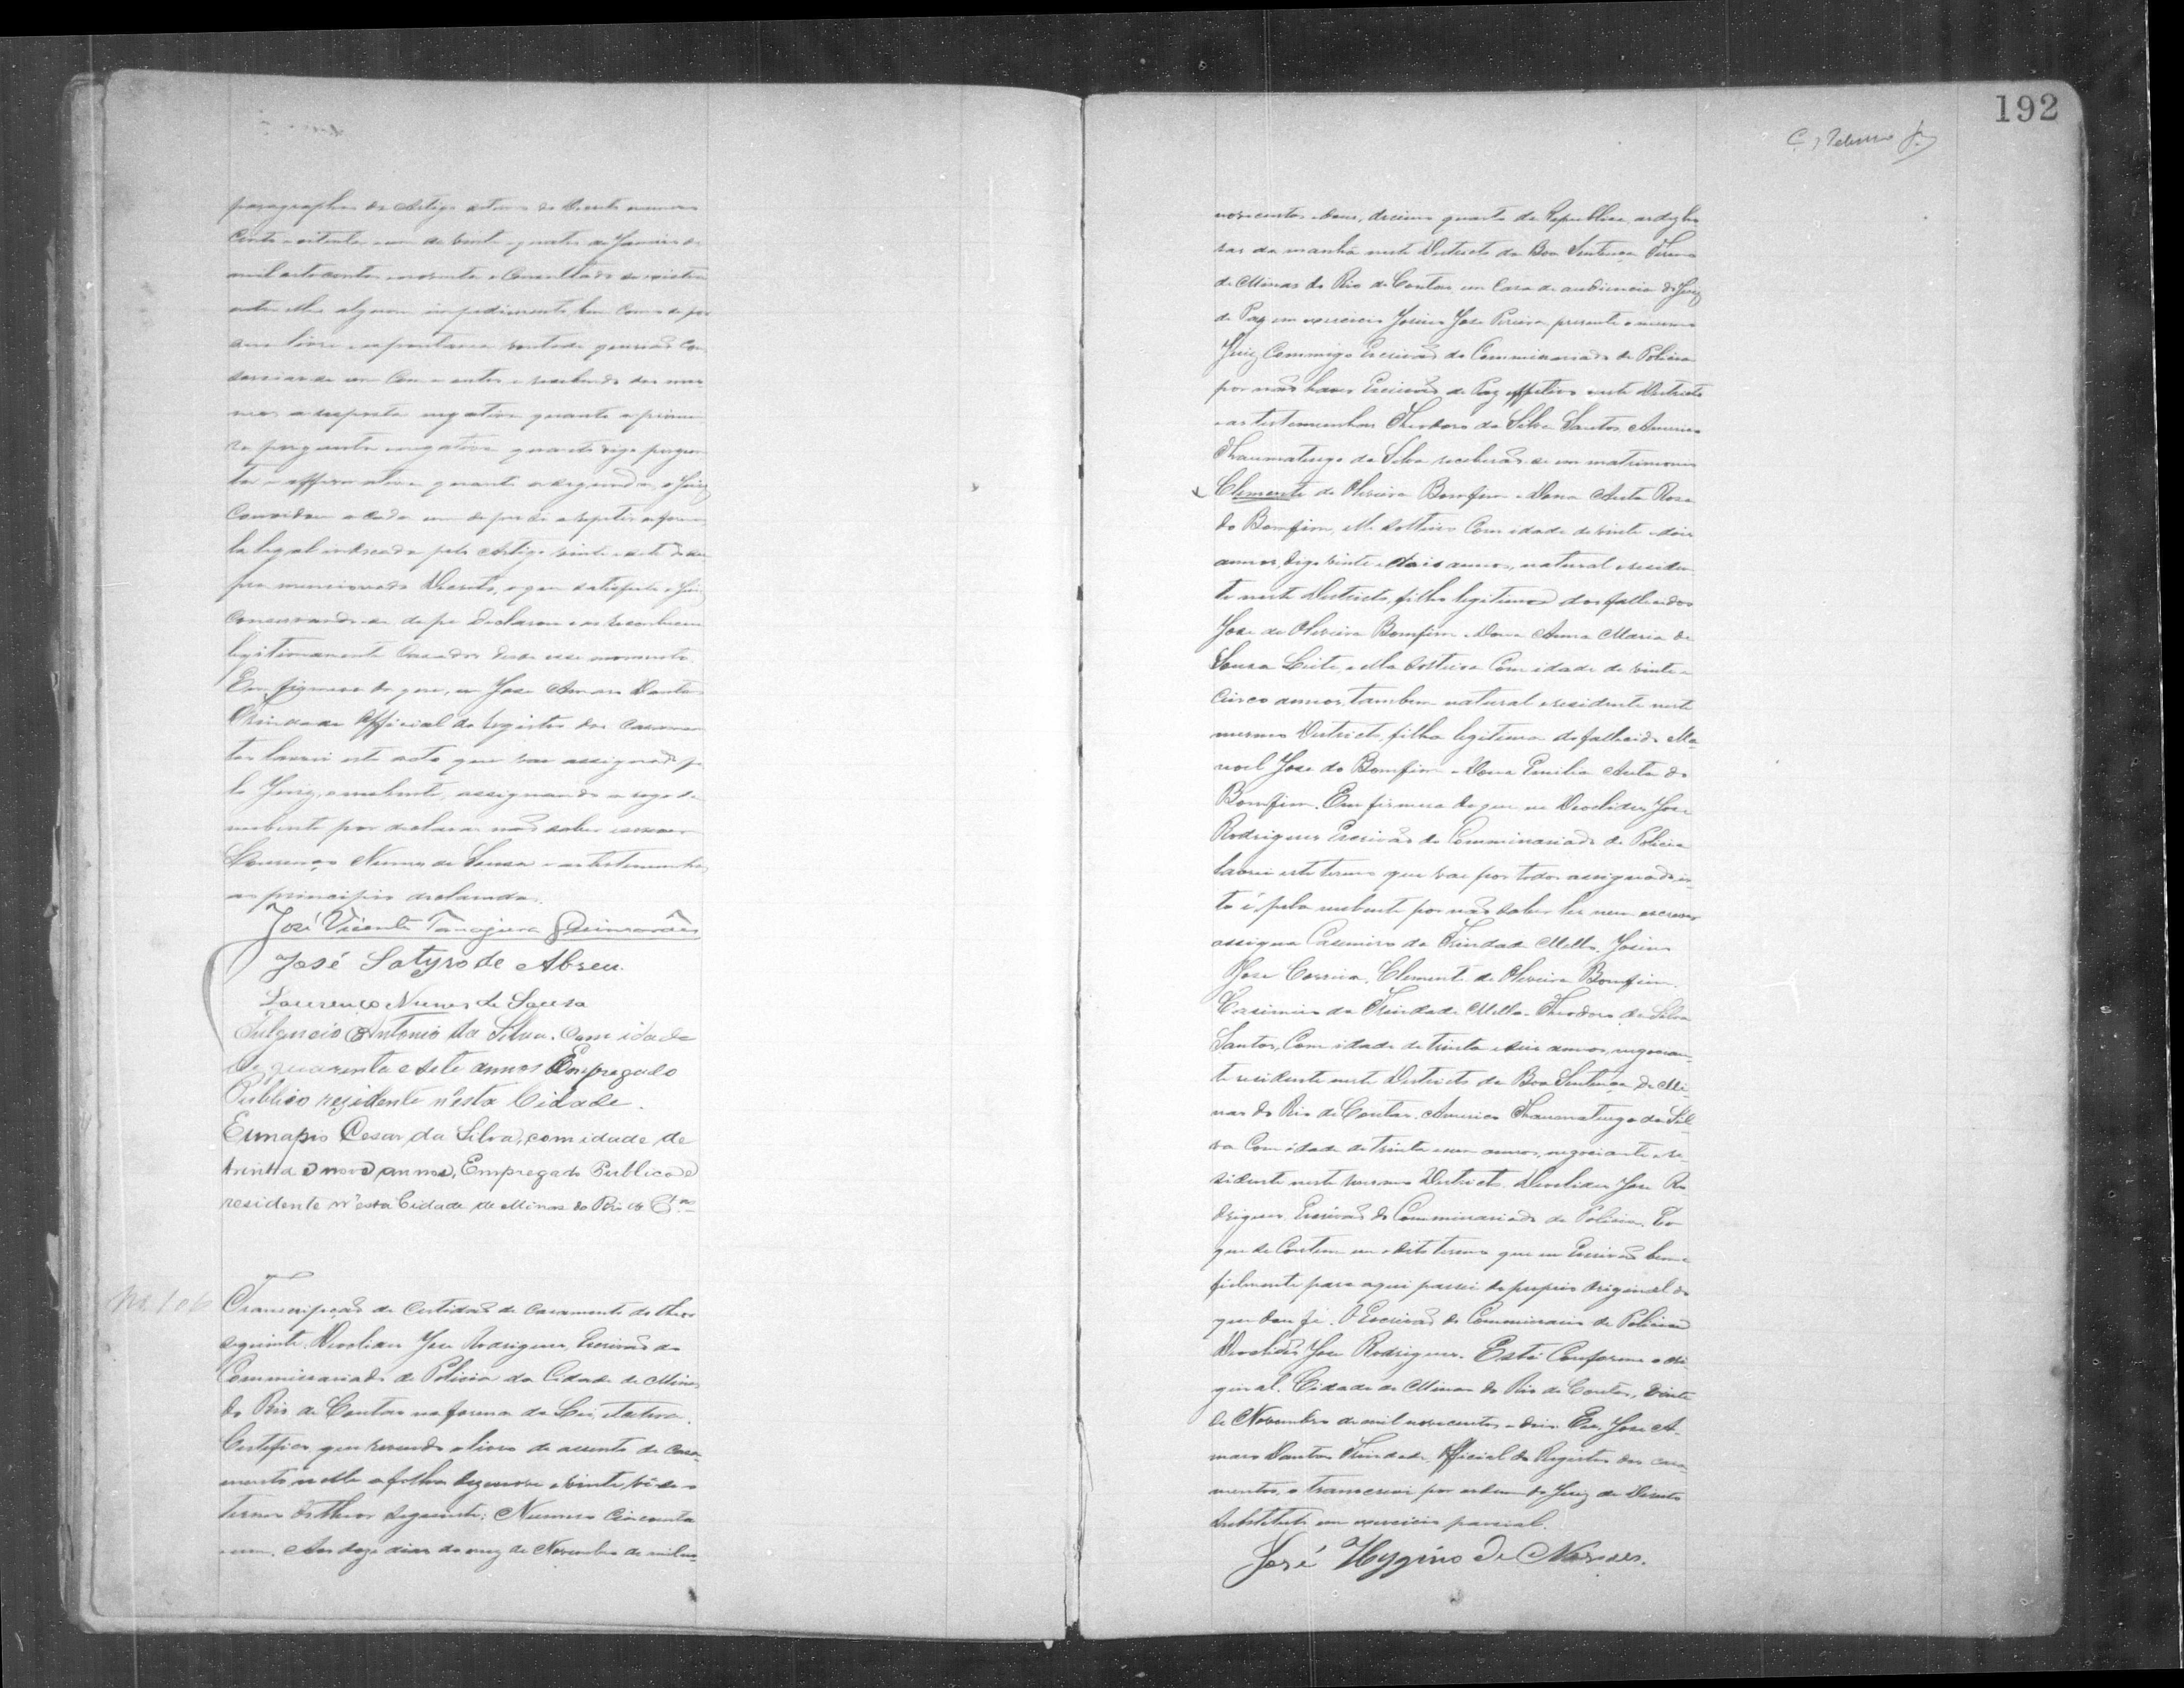 paragraphos do Artigo setimo do Decreto numero
Cento e oitenta e um de vinte e quatro de Janeiro de
mil oitocentos e noventa e Consultado se existia
entre elles algum impedimento bem como se por
sua livre e espontanea vontade querião con
sorciar-se um com o outro e recebendo dos mes
mos a resposta negativa quanto a primei
ra pergunta negativa quanto digo pergun
ta e affirmativa quanto a segunda, o Juiz
Convidou a cada um de per si a repetir a formu
la legal indicada pelo Artigo vinte e sete do sem
pre mencionado Decreto, o que satisfeito o Juiz
Conservando-se de pé declarou e os reconheceu
legitimamente Casados desde esse momento.
Em firmeza do que, eu Jose Amaro Dantas
Trindade Official do registro dos Casamen
tos lavrei este acto que vae assignado pe
lo Juiz, o nubente, assignando a rogo da
nubente por declarar não saber escrever
Lourenço Nunes de Sousa e as testemunhas
ao principio declaradas.
José Vicente Tanajura Guimarães
José Satyro de Abreu.
Lourenço Nunes de Sousa
Fulgencio Antonio da Silva. Com idade
de quarenta e sete annos Empregado
Publico residente n'esta Cidade.
Eunapio Cesar da Silva, com idade de
trinta e nove annos, Empregado Publico e
residente n'esta Cidade de Minas do Rio de Ctas
No. 106
Transcripção de Certidão de casamento do theor
seguinte. Deoclides Jose Rodrigues, Escrivão do
Commissariado de Policia da Cidade de Minas
do Rio de Contas na forma da Lei, etc.
Certifico, que revendo o livro de assento de casa-
mento n'elle a folhas dezenove e vinte, vê-se o
termo do theor seguinte: Numero Cincoenta
e um. Aos doze dias do mez de Novembro de mil no-
192
novecentos e dous, decimo quarto da Republica, as dez ho-
ras da manhã neste Districto da Boa Sentença Termo
de Minas do Rio de Contas, em Casa de audiencia do Juiz
de Paz em exercicio Josino Jose Pereira presente o mesmo
Juiz Commigo Escrivão do Commissariado de Policia
por não haver Escrivão de Paz effetivo neste Districto
e as testemunhas Theodoro da Silva Santos, Americo
Thaumaturgo da Silva receberão-se em matrimonio
Clemente de Oliveira Bomfim e Dona Anta Rosa
do Bomfim, elle solteiro Com idade de vinte e dois
annos, digo vinte e dois annos, natural e residen
te neste Districto, filho legitimo dos fallecidos
Jose de Oliveira Bomfim e Dona Anna Maria de
Sousa Leite, e ella solteira Com idade de vinte e
cinco annos, tambem natural e residente neste
mesmo Districto, filha legitima do fallecido Ma
noel Jose do Bomfim e Dona Emilia Anta do
Bomfim. Em firmeza do que eu Deoclides Jose
Rodrigues Escrivão do Commissariado de Policia
lavrei este termo que vae por todos assignado, is
to é, pela nubente por não saber ler nem escrever
assigna Casimiro da Trindade Mello. Josino
Jose Correia. Clemente de Oliveira Bomfim.
Casimiro da Trindade Mello. Theodoro da Silva
Santos, Com idade de trinta e seis annos, negocian-
te residente neste Districto da Boa Sentença de Mi
nas do Rio de Contas. Americo Thaumaturgo da Sil
va Com idade de trinta e um annos, negociante e re-
sidente neste mesmo Districto. Deoclides Jose Ro
drigues. Escrivão do Commissariado de Policia. Eo
que se Contem em o dito termo que eu Escrivão bem e
fielmente para aqui passei do proprio original do
que dou fé. O Escrivão do Commissario de Policia
Deoclides Jose Rodrigues. Está Conforme o ori-
ginal. Cidade de Minas do Rio de Contas, vinte
de Novembro de mil novecentos e dois. Eu, Jose A-
maro Dantas Trindade, Official do Registro dos casa
mentos, o transcrevi por ordem do Juiz de Direito
Substituto em exercicio parcial.
José Hygino de Moraes.